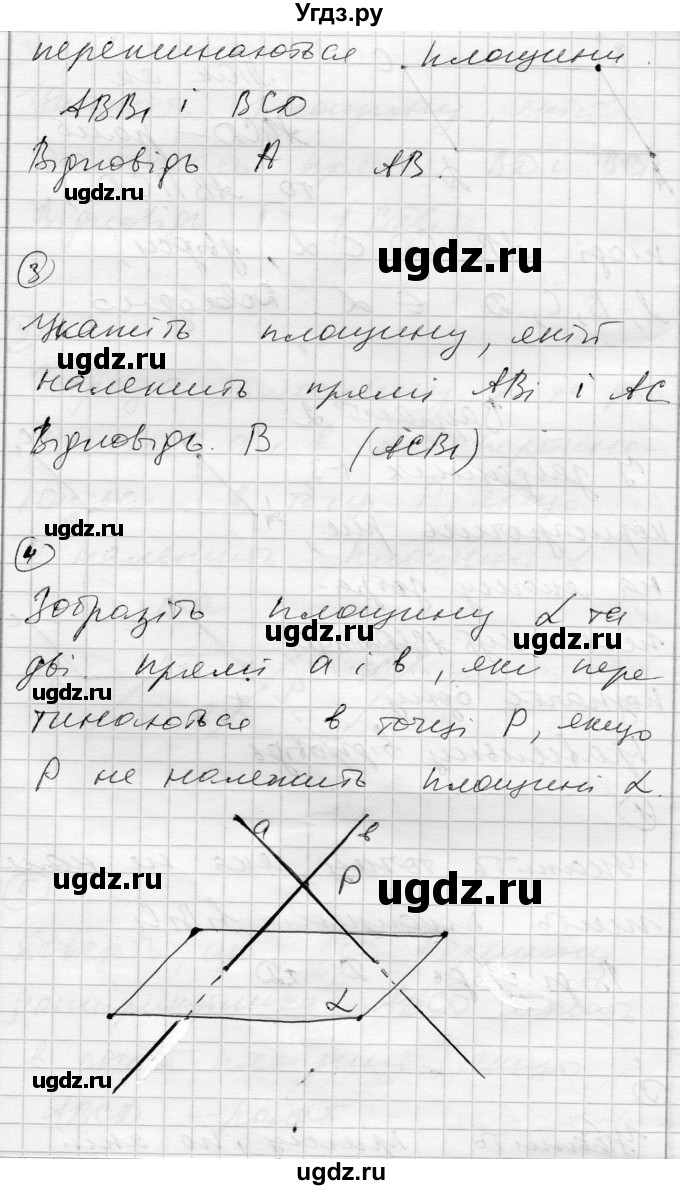 Угдз.ру
перетинаються площини
ABB₁ і BCD
Відповідь A AB.
ugdz.ru
ugdz.ru
3
Укажіть площину, якій
ugdz.ru
належить прямі AB₁ і AC
Відповідь. B (ACB₁)
ugdz.ru
4
Зобразіть площину α та
ugdz.ru ugdz.ru
дві прямі a і b, які пере
ugdz.ru
тинаються в точці P, якщо
P не належить площині α.
a b
P
ugdz.ru ugdz.ru
α
ugdz.ru
ugdz.ru